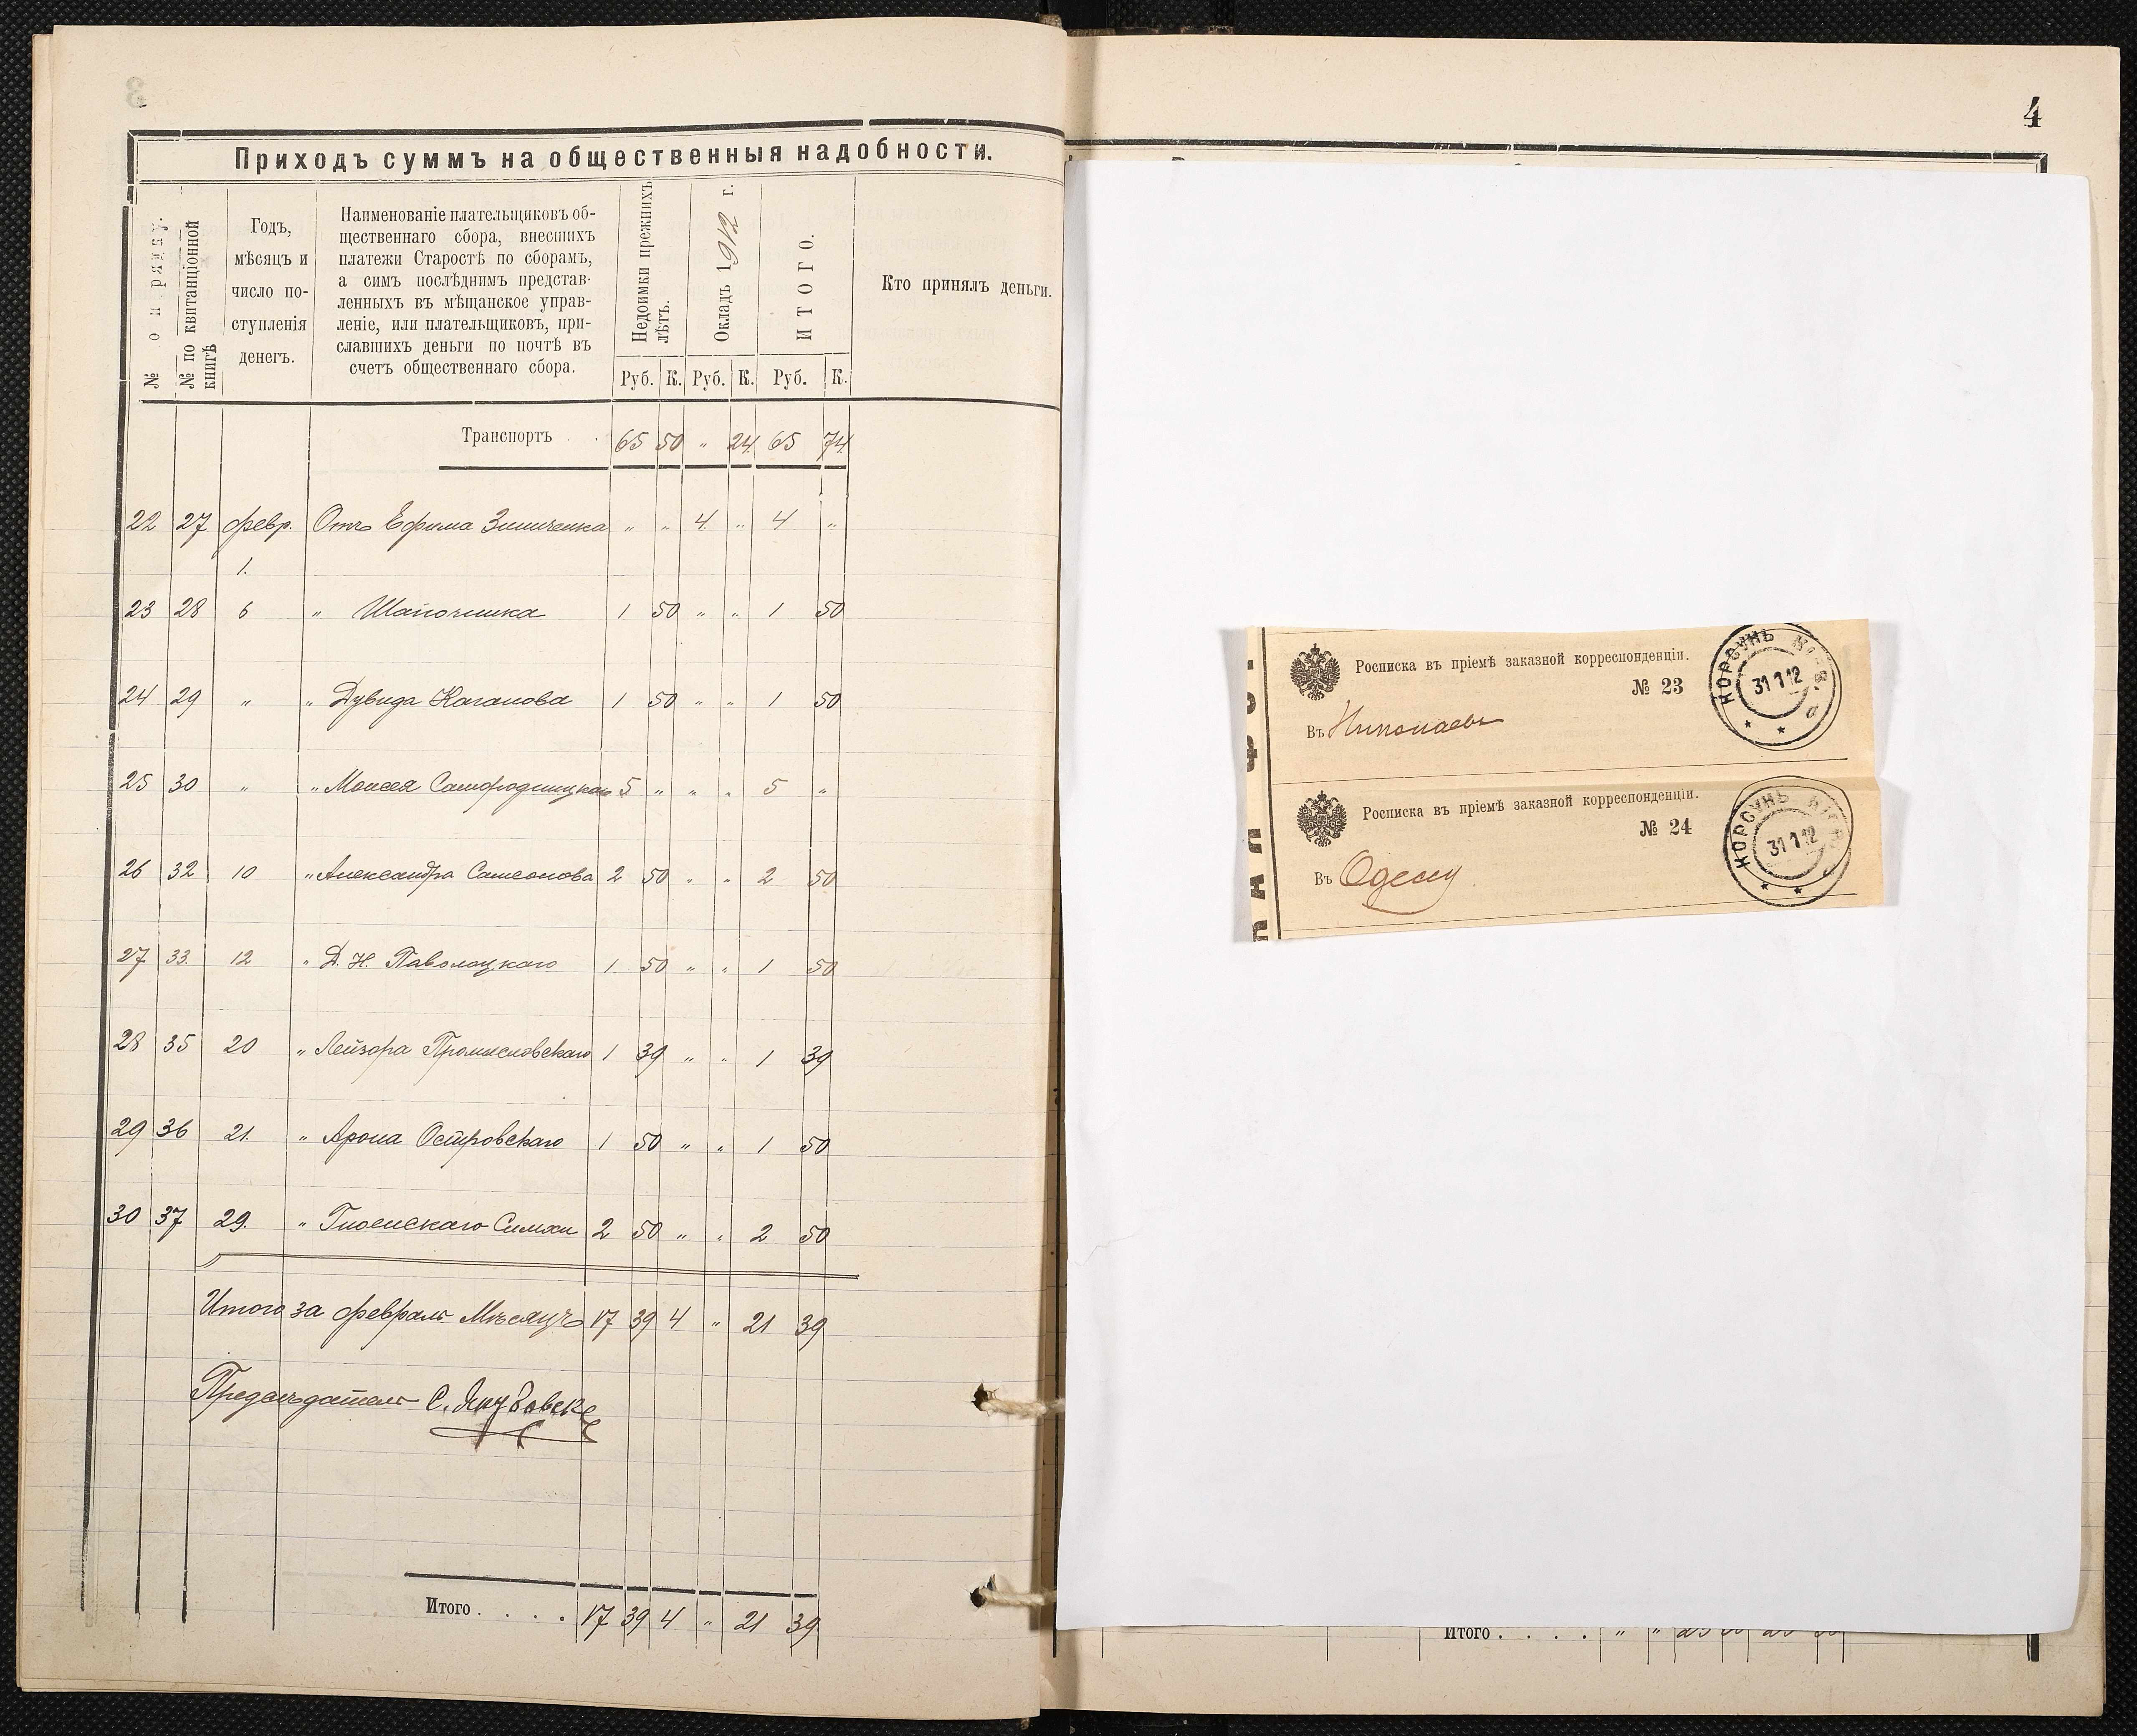 4
Приходъ суммъ на общественныя надобности.
№ по ряду.
№ по квитанціонной книгѣ
Годъ,
мѣсяцъ и
число по-
ступленія
денегъ.
Наименованіе плательщиковъ об-
щественнаго сбора, внесшихъ
платежи Старостѣ по сборамъ,
а симъ послѣднимъ представ-
ленныхъ въ мѣщанское управ-
леніе, или плательщиковъ, при-
славшихъ деньги по почтѣ въ
счетъ общественнаго сбора.
Недоимки прежнихъ
лѣтъ.
Окладъ 1912 г.
ИТОГО.
Кто принялъ деньги.
Руб. К. Руб. К. Руб. К.
Транспортъ 65 50 " 24 65 74
22 27 февр. Отъ Ефима Зинченка " " 4 " 4 "
1.
23 28 6 " Шапочника 1 50 " " 1 50
24 29 " " Дувида Каганова 1 50 " " 1 50
25 30 " " Моисея 5 " " " 5 "
26 32 10 " Александра Самсонова 2 50 " " 2 50
27 33 12 " Д. Н. Паволоцкаго 1 50 " " 1 50
28 35 20 " Лейзора Промысловскаго 1 39 " " 1 39
29 36 21. " Арона Островскаго 1 50 " " 1 50
30 37 29. " Гноенскаго Симхи 2 50 " " 2 50
Итого за февраль Мѣсяцъ 17 39 4 " 21 39
Предсѣдатель С.
Итого . . . . 17 39 4 " 21 39
Росписка въ пріемѣ заказной корреспонденціи.
№ 23
Въ Николаевъ
КОРСУНЬ КІЕВ.
31 1 12
Росписка въ пріемѣ заказной корреспонденціи.
№ 24
Въ Одессу
КОРСУНЬ
31 1 12
Итого . . . . " "